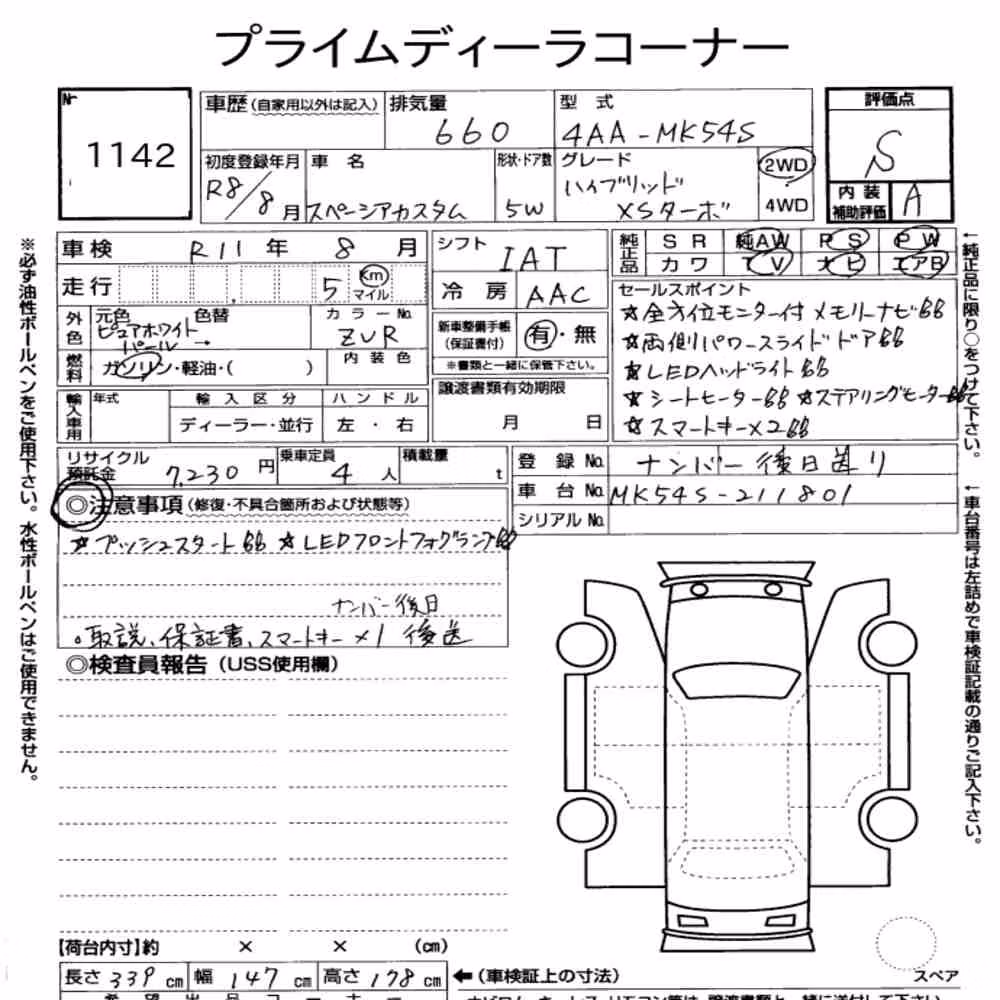 プライムディーラコーナー
Nr
1142
車歴(自家用以外は記入)
排気量
660
型 式
4AA-MK54S
評価点
S
初度登録年月
R8/8月
車 名
スペーシアカスタム
形状・ドア数
5W
グレード
ハイブリッド
XSターボ
2WD
4WD
内装
補助評価
A
車検 R11年 8月
走行 5 Km
マイル
外色
元色 色替
ピュアホワイト
パール →
カラーNo.
ZVR
燃料
ガソリン・軽油・( )
内装色
輸入車用
年式
輸入区分
ハンドル
ディーラー・並行
左・右
シフト
IAT
冷房
AAC
新車整備手帳
(保証書付)
有・無
※書類と一緒に保管下さい。
譲渡書類有効期限
月 日
純正品
SR 純AW PS PW
カワ TV ナビ エアB
セールスポイント
☆全方位モニター付メモリーナビ付
☆両側パワースライドドア付
☆LEDヘッドライト付
☆シートヒーター付 ☆ステアリングヒーター付
☆スマートキー×2付
リサイクル
預託金
7,230円
乗車定員
4人
積載量
t
登録No. ナンバー後日送り
車台No. MK54S-211801
シリアルNo.
◎注意事項(修復・不具合箇所および状態等)
☆プッシュスタート付 ☆LEDフロントフォグランプ付
ナンバー後日
。取説、保証書、スマートキー×1 後送
◎検査員報告(USS使用欄)
【荷台内寸】約 × × (cm)
長さ339cm 幅147cm 高さ178cm
←(車検証上の寸法)
スペア
※必ず油性ボールペンをご使用下さい。水性ボールペンはご使用できません。
←純正品に限り○をつけて下さい。
←車台番号は左詰めで車検証記載の通りご記入下さい。